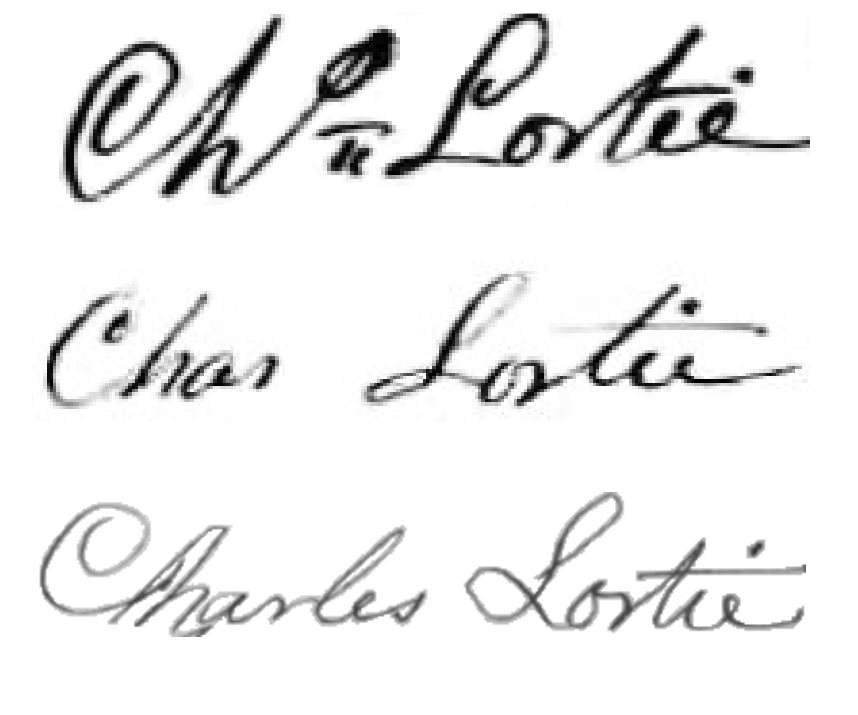 Chs Lortie
Chas Lortie
Charles Lortie